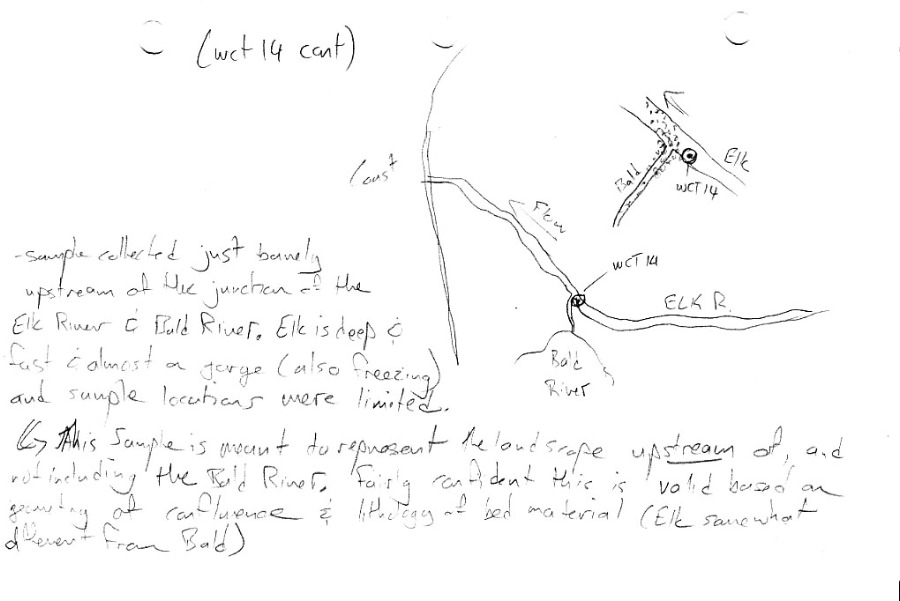 (wct 14 cont)
Coast
Flow
WCT 14
ELK R.
Bald
River
Bald
Elk
WCT 14
-sample collected just barely
upstream of the junction of the
Elk River & Bald River. Elk is deep &
fast & almost a gorge (also freezing)
and sample locations were limited.
This Sample is meant to represent the landscape upstream of, and
not including the Bald River. Fairly confident this is valid based on
geometry of confluence & lithology of bed material (Elk somewhat
different from Bald)